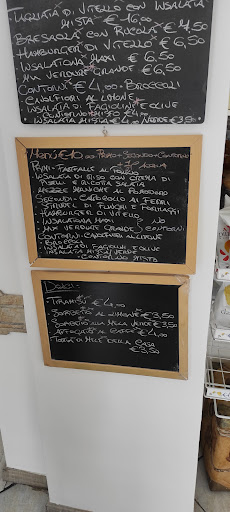 TAGLIATA DI VITELLO CON INSALATA
MISTA € 16,00
BRESAOLA CON RUCOLA € 7,50
HAMBURGER DI VITELLO € 6,50
INSALATONA MAXI € 6,50
MIX VERDURE GRANDE € 6,50
CONTORNI € 4,00 - BROCCOLI
CAVOLFIORI AL LIMONE
INSALATA DI FAGIOLINI E OLIVE
CONTORNO MISTO €
INSALATA MISTA € 4,00 VERDE € 3,50
MENÙ € 10,00 PRIMO + SECONDO + CONTORNO
+ ACQUA
PRIMI - FARFALLE AL
INSALATA DI RISO CON CREMA DI
PISELLI E RICOTTA SALATA
MEZZE MANICHE AL POMODORO
SECONDI - CAPOCOLLO AI FERRI
STRUDEL DI FUNGHI E FORMAGGI
HAMBURGER DI VITELLO
INSALATONA MAXI NO
MIX VERDURE GRANDE CONTORNI
CONTORNI - CAVOLFIORI AL LIMONE
BROCCOLI
INSALATA DI FAGIOLINI E OLIVE
INSALATA MISTA / VERDE
CONTORNO MISTO
DOLCI:
TIRAMISÙ € 4,00
SORBETTO AL LIMONE € 3,50
SORBETTO ALLA MELA VERDE € 3,50
AFFOGATO AL CAFFÈ € 4,00
TORTA DI MELE DELLA CASA
€ 3,50